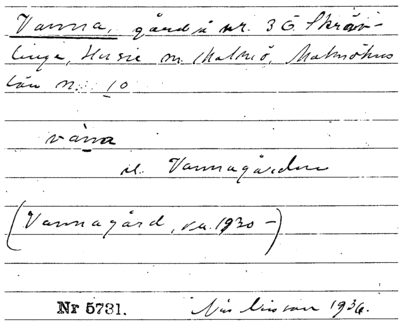 Vanna, gård å nr. 36 Skräv-
linge, Husie m. Malmö, Malmöhus
län nr. 10
vana
el. Vannagården
(Vannagård, va. 1930-)
Nr 5731. Nils Nilsson 1936.